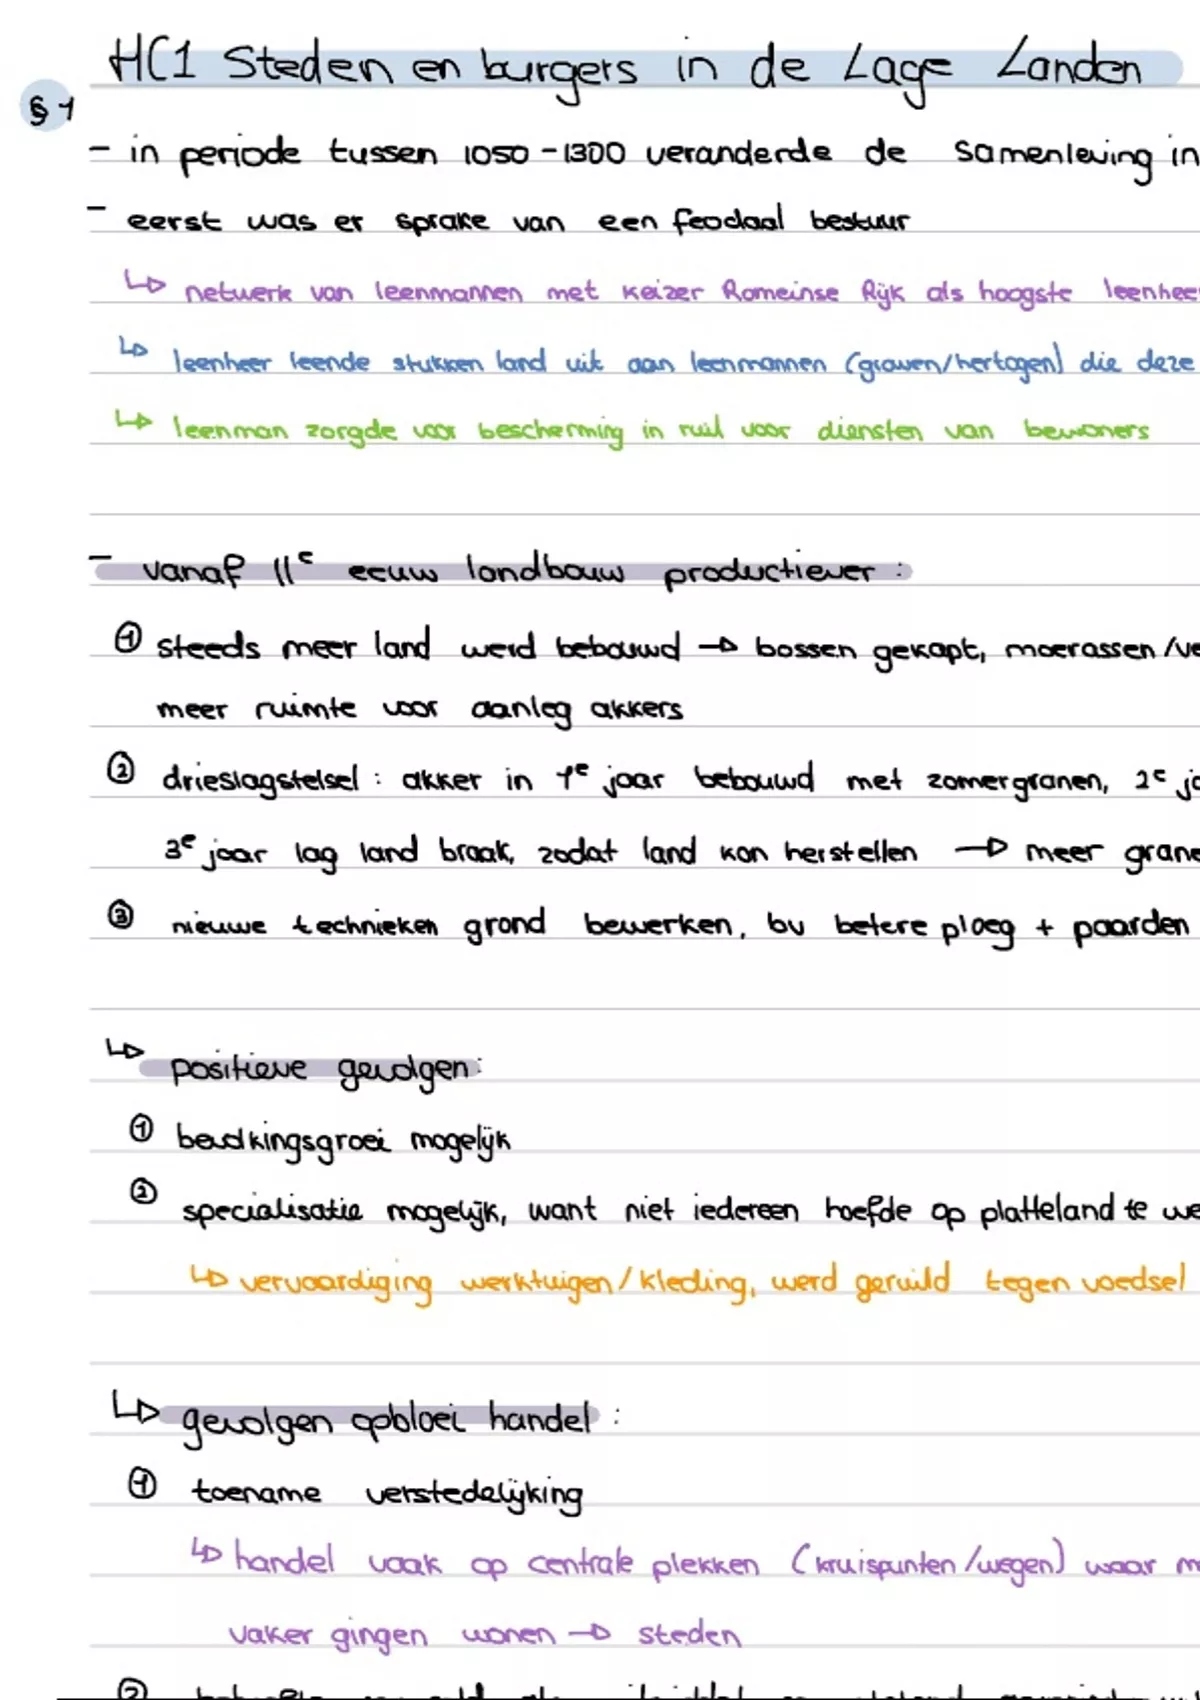 HC1 Steden en burgers in de Lage Landen
§ 1
- in periode tussen 1050 - 1300 veranderde de samenleving in
- eerst was er sprake van een feodaal bestuur
↳ netwerk van leenmannen met keizer Romeinse Rijk als hoogste leenheer
↳ leenheer leende stukken land uit aan leenmannen (graven/hertogen) die deze
↳ leenman zorgde voor bescherming in ruil voor diensten van bewoners
- vanaf 11e eeuw landbouw productiever :
① steeds meer land werd bebouwd → bossen gekapt, moerassen /ve
meer ruimte voor aanleg akkers
② drieslagstelsel : akker in 1e jaar bebouwd met zomergranen, 2e ja
3e jaar lag land braak, zodat land kon herstellen → meer grane
③ nieuwe technieken grond bewerken, bv betere ploeg + paarden
↳ positieve gevolgen:
① bevolkingsgroei mogelijk
② specialisatie mogelijk, want niet iedereen hoefde op platteland te we
↳ vervaardiging werktuigen / kleding, werd geruild tegen voedsel
↳ gevolgen opbloei handel :
① toename verstedelijking
↳ handel vaak op centrale plekken (kruispunten /wegen) waar m
vaker gingen wonen → steden
②